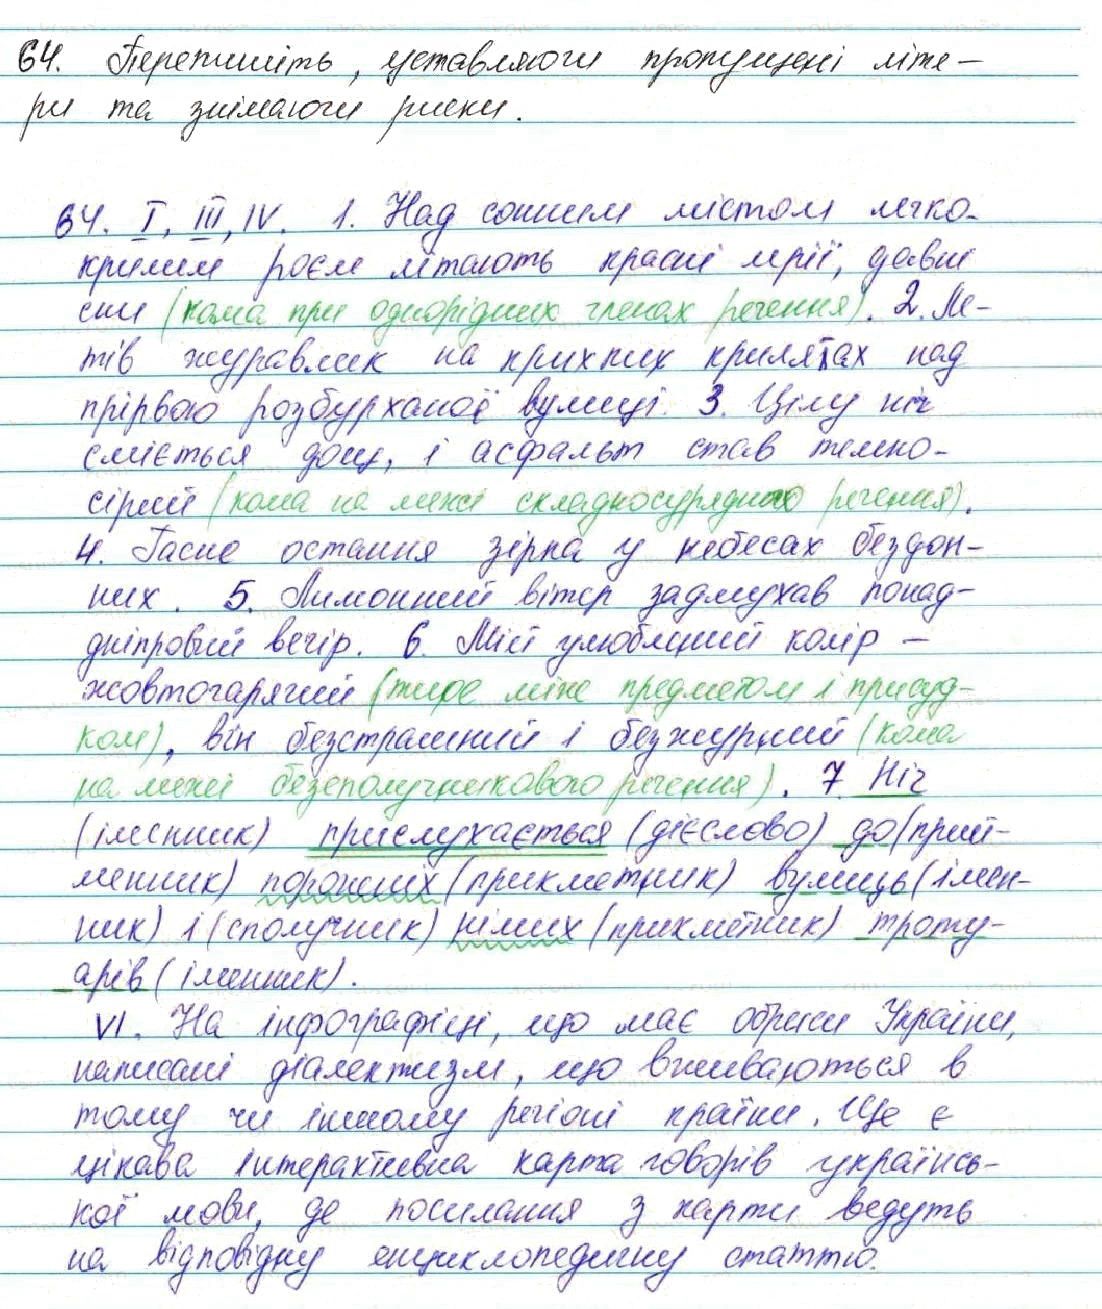 64. Перепишіть, уставляючи пропущені літе-
ри та знімаючи риски.
64. I, III, IV. 1. Над сонним містом легко-
крилим роєм літають красні мрії, давні
сни (кома при однорідних членах речення). 2. Ле-
тів журавлик на крихких крилятах над
прірвою розбурханої вулиці. 3. Цілу ніч
сміється дощ, і асфальт став темно-
сірий (кома на межі складносурядного речення).
4. Гасне остання зірка у небесах бездон-
них. 5. Лимонний вітер задмухав понад-
дніпровий вечір. 6. Мій улюблений колір –
жовтогарячий (тире між предметом і присуд-
ком), він безстрашний і безжурний (кома
на межі безсполучникового речення). 7. Ніч
(іменник) прислухається (дієслово) до (прий-
менник) порожніх (прикметник) вулиць (імен-
ник) і (сполучник) німих (прикметник) троту-
арів (іменник).
VI. На інфографіці, що має обриси України,
написані діалектизм, що вживаються в
тому чи іншому регіоні країни. Це є
цікава інтерактивна карта говорів українсь-
кої мови, де посилання з карти ведуть
на відповідну енциклопедичну статтю.